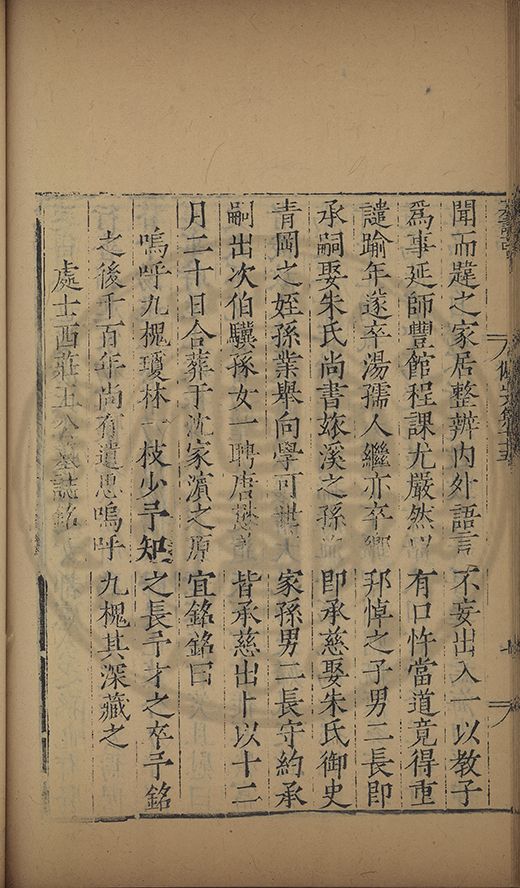 聞而韙之家居整辨内外語言不妄出入一以教子
爲事延師豐館程課尤嚴然以有口忤當道竟得重
譴踰年遂卒湯孺人繼亦卒鄉邦悼之子男二長即
承嗣娶朱氏尚書旅溪之孫即承慈娶朱氏御史
青岡之姪孫業舉向學可世家孫男二長守約承
嗣出次伯驥孫女一聘唐皆承慈出卜以十二
月二十日合葬于沈家濵之原宜銘銘曰
嗚呼九槐瓊林一枝少予知之長予才之卒予銘
之後千百年尚有遺思嗚呼九槐其深藏之
處士西莊王公墓誌銘